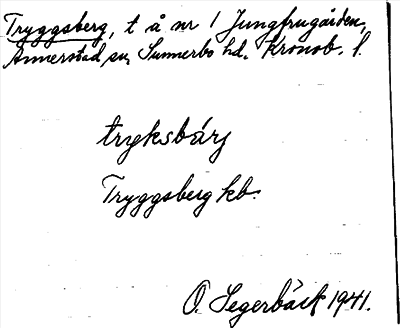 Tryggsberg, t å nr 1 Jungfrugården,
Annerstad sn, Sunnerbo hd. Kronob. l.
tryksbárj
Tryggsberg kb.
O. Segerbäck 1941.